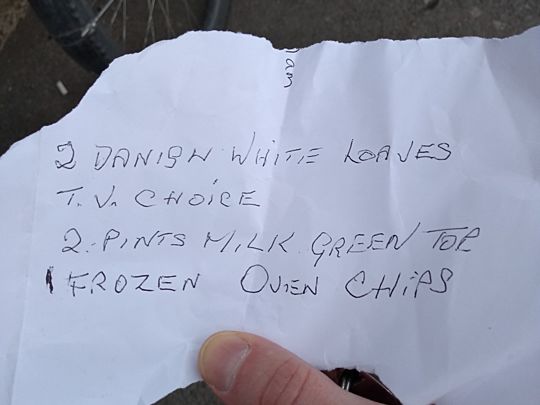 am
2 DANISH WHITE LOAVES
T.V. CHOICE
2. PINTS MILK GREEN TOP
1 FROZEN OVEN CHIPS